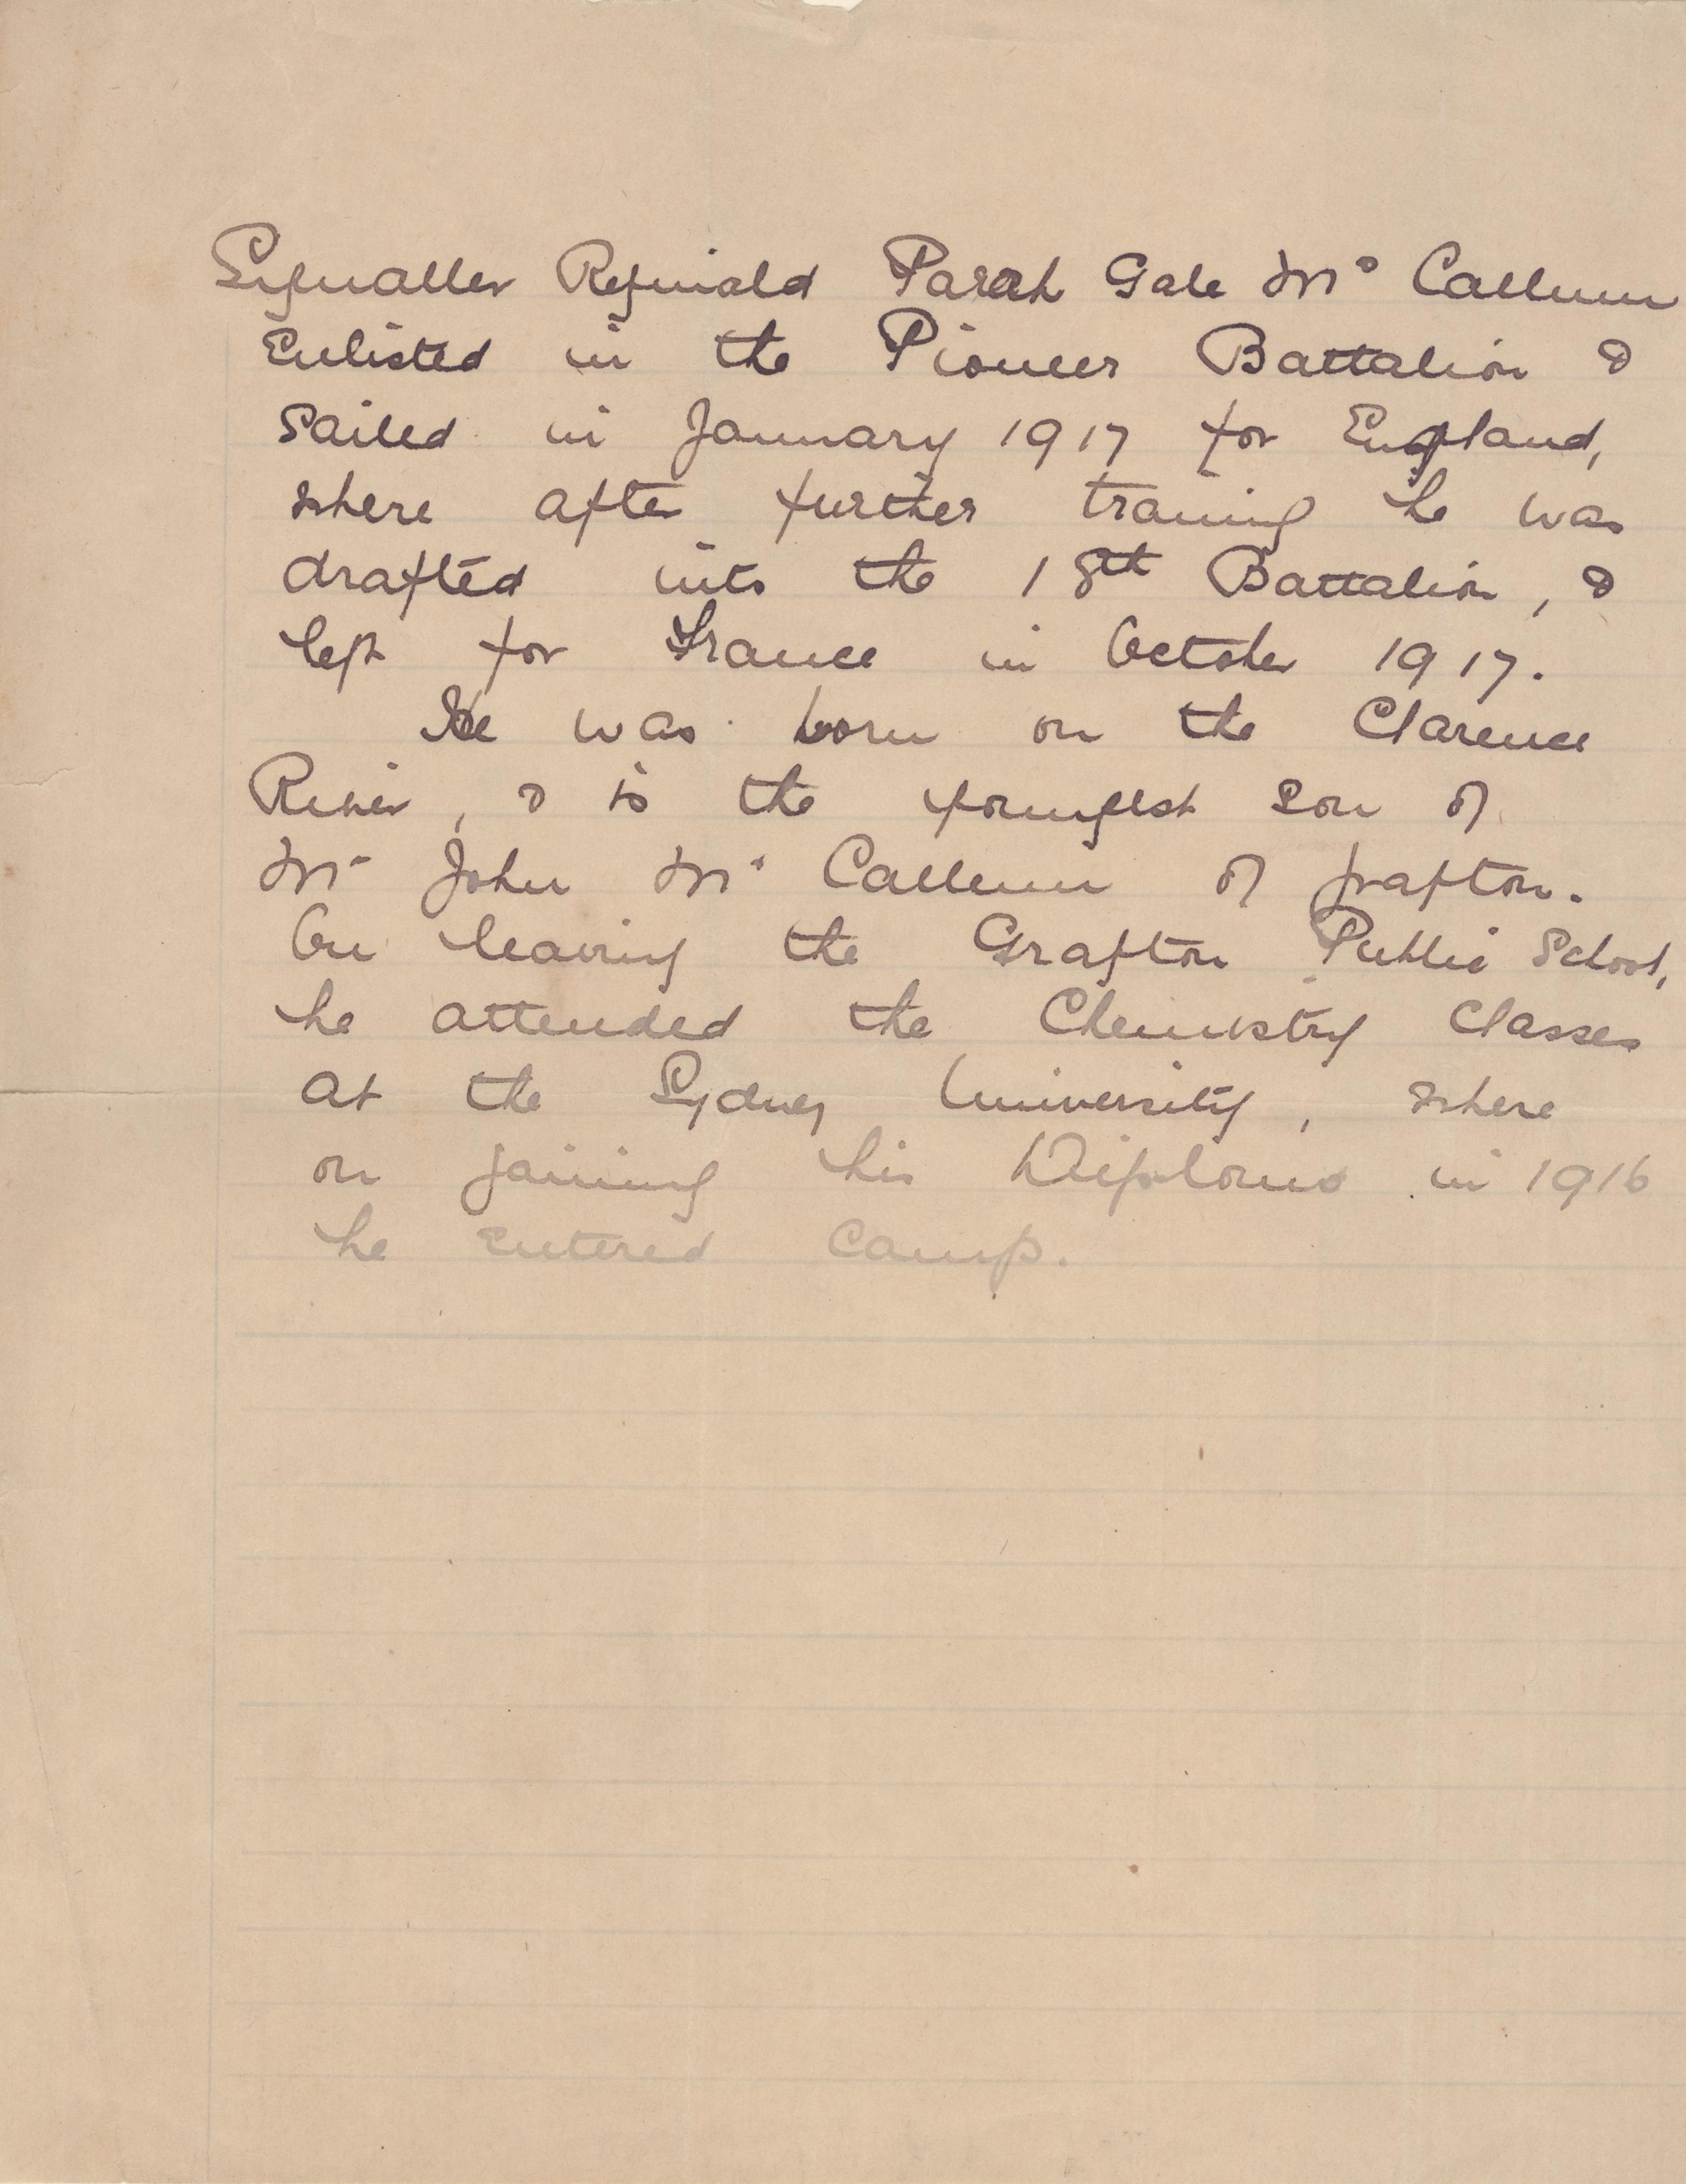 Signaller Reginald Parah Gale Mc Callum
Enlisted in the Pioneer Battalion &
Sailed in January 1917 for England,
where after further training he was
drafted into the 18th Battalion, &
left for France in October 1917.
He was born on the Clarence
River, & is the youngest son of
Mr John Mc Callum of Grafton.
On leaving the Grafton Public School,
he attended the Chemistry Classes
at the Sydney University, where
on gaining his Diploma in 1916
he entered Camp.